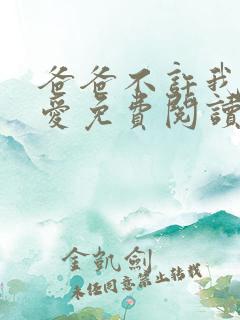 爸爸不許我
愛免費閱讀
金凱劍
未经同意禁止转载